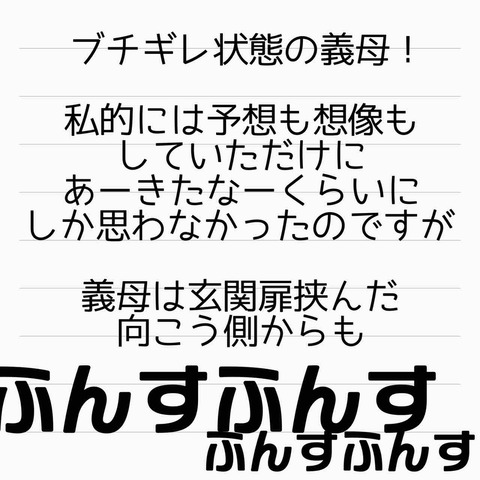 ブチギレ状態の義母！
私的には予想も想像も
していただけに
あーきたなーくらいに
しか思わなかったのですが
義母は玄関扉挟んだ
向こう側からも
ふんすふんす
ふんすふんす